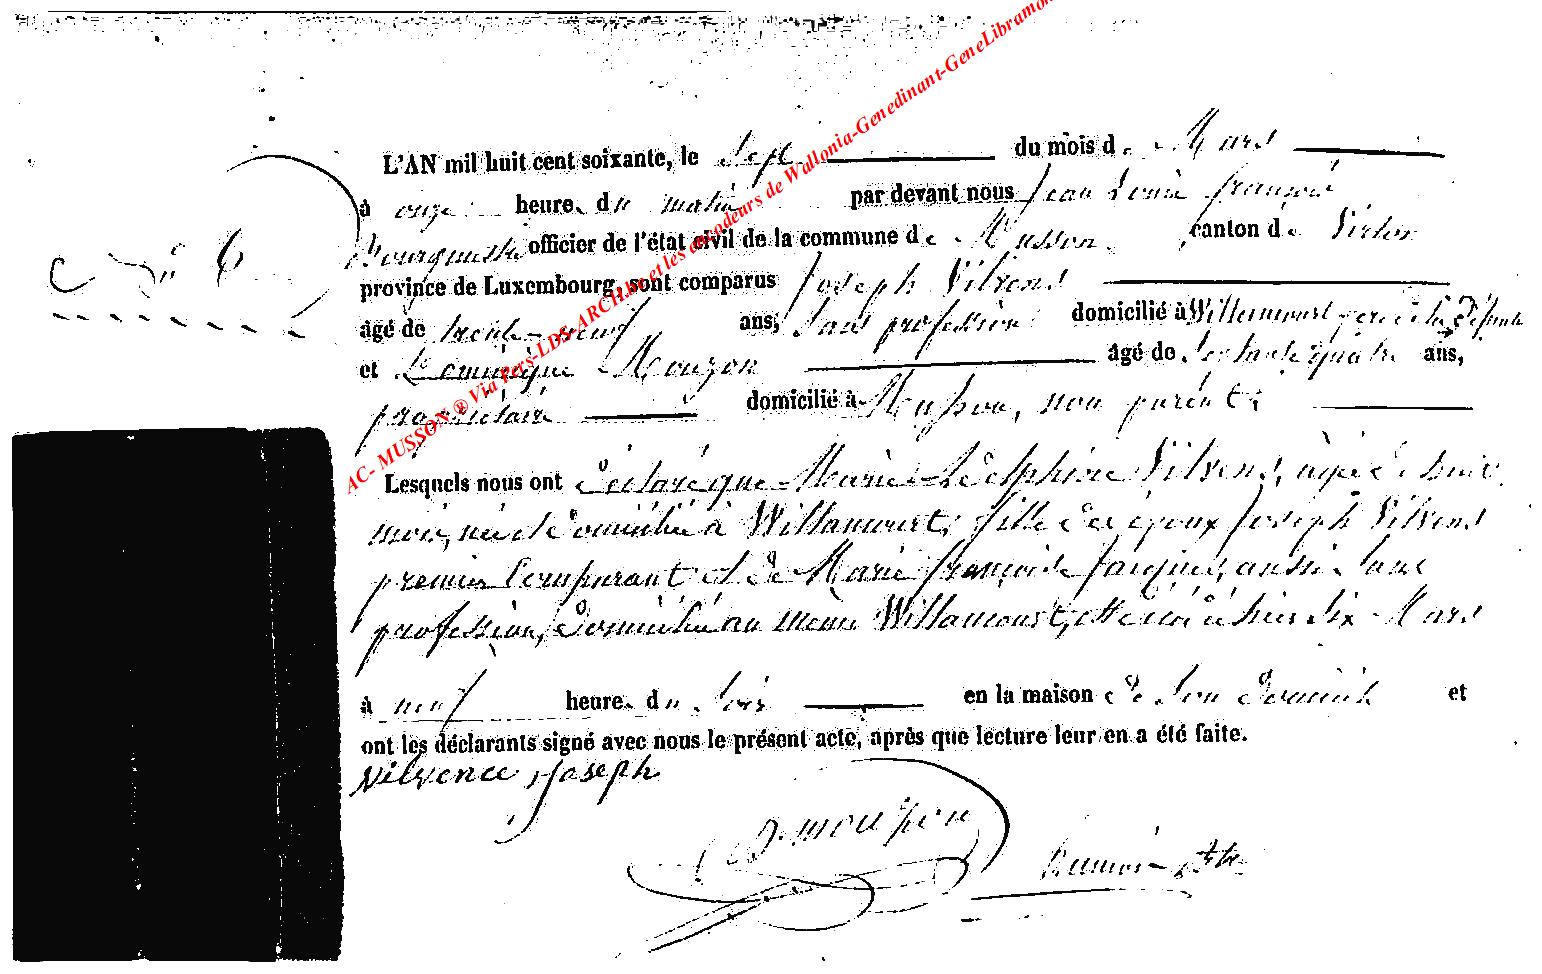 L'AN mil huit cent soixante, le Sept du mois de Mars
à onze heures du matin par devant nous Jean Louis François
officier de l'état civil de la commune de Musson, canton de Virton
province de Luxembourg, sont comparus Joseph Vilvens
âgé de trente-neuf ans, Sans profession domicilié à Willancourt père de la Défunte
et Dominique Mouzon âgé de Soixante quatre ans,
propriétaire domicilié à Musson, non parent;
N° 6
Lesquels nous ont déclaré que Marie Delphine Vilvens, agée de huit
mois, née et domiciliée à Willancourt, fille des époux Joseph Vilvens
premier Comparant et de Marie françoise Jacques, aussi Sans
profession, domiciliée au même Willancourt, est décédée hier Six Mars
à neuf heures du Soir en la maison de Son domicile et
ont les déclarants signé avec nous le présent acte, après que lecture leur en a été faite.
Vilvence Joseph
D. mouzon
AC- MUSSON ® Via Pers-LDS-ARCH.be et les encodeurs de Wallonia-Genedinant-GeneLibramont